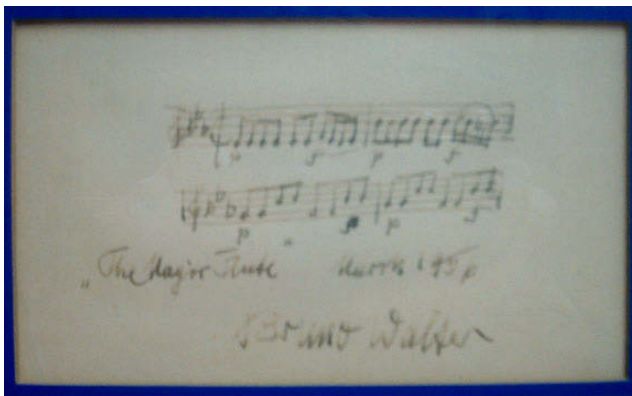 „The Magic Flute" March
Bruno Walter